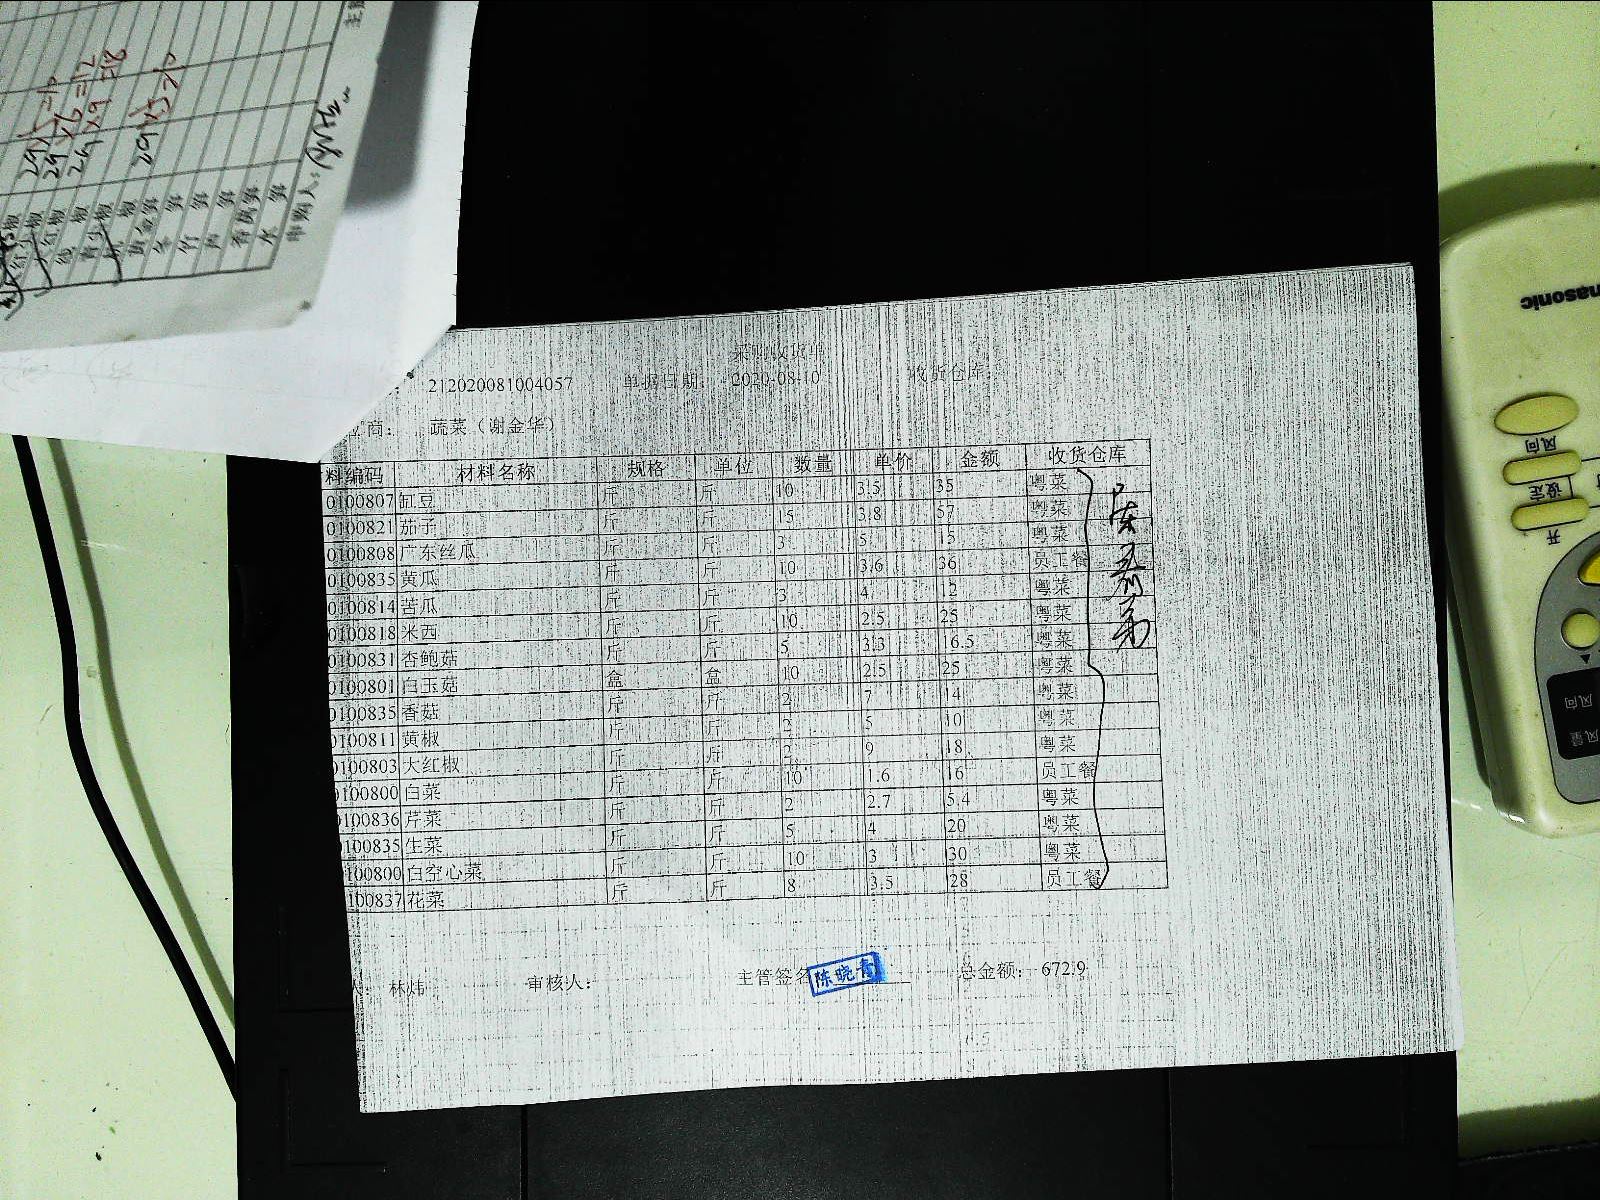 采购收货单
2|2020081004057 单据日期: 2020-08-10 收货仓库:
应商: 蔬菜（谢金华）
料编码 材料名称 规格 单位 数量 单价 金额 收货仓库
0100807 缸豆 斤 斤 10 3.5 35 粤菜
0100821 茄子 斤 斤 15 3.8 57 粤菜
0100808 广东丝瓜 斤 斤 3 5 15 粤菜
0100835 黄瓜 斤 斤 10 3.6 36 员工餐
0100814 苦瓜 斤 斤 3 4 12 粤菜
0100818 米西 斤 斤 10 2.5 25 粤菜
0100831 杏鲍菇 斤 斤 5 3.3 16.5 粤菜
0100801 白玉菇 盒 盒 10 2.5 25 粤菜
0100835 香菇 斤 斤 2 7 14 粤菜
0100811 黄椒 斤 斤 2 5 10 粤菜
0100803 大红椒 斤 斤 2 9 18 粤菜
0100800 白菜 斤 斤 10 1.6 16 员工餐
0100836 芹菜 斤 斤 2 2.7 5.4 粤菜
0100835 生菜 斤 斤 5 4 20 粤菜
100800 白空心菜 斤 斤 10 3 30 粤菜
100837 花菜 斤 斤 8 3.5 28 员工餐
人: 林炜 审核人: 主管签名 陈晓青 总金额: 672.9
nasonic
风向
设定
开
风向
风量
线椒
青尖椒
黄金笋
冬笋
竹笋
香莴笋
水笋
申购人:
2斤×5=10
2斤×6=12
2斤×9=18